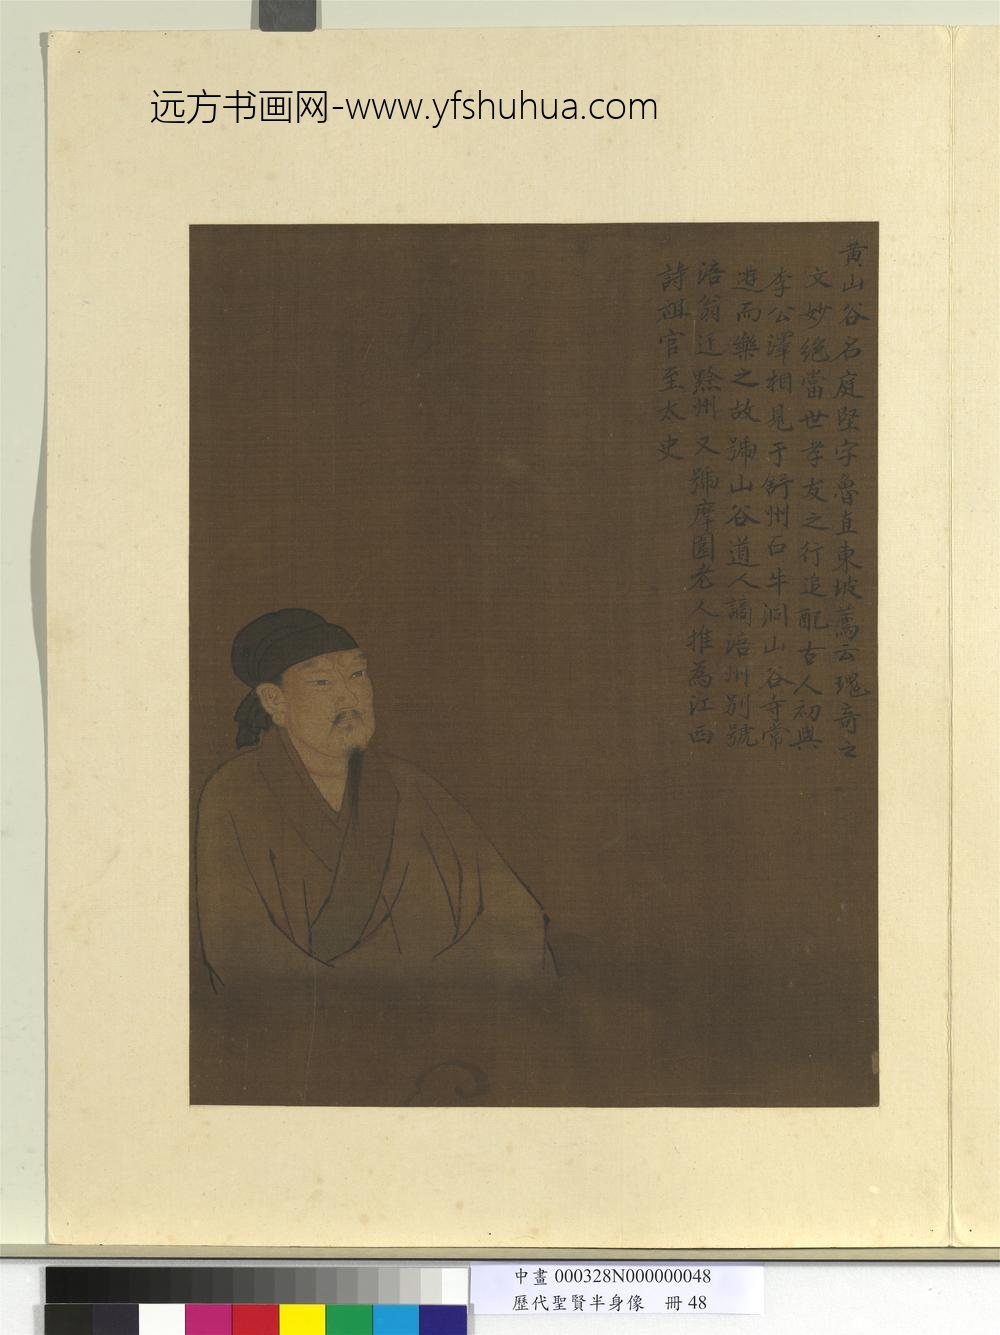 远方书画网-www.yfshuhua.com
黄山谷名庭堅字魯直東坡薦云瑰奇之
文妙絶當世孝友之行追配古人初與
李公澤相見于舒州石牛洞山谷寺常
遊而樂之故號山谷道人謫涪州別號
涪翁近黔州又號摩圍老人推為江西
詩祖官至太史
中畫 000328N000000048
歷代聖賢半身像 冊 48